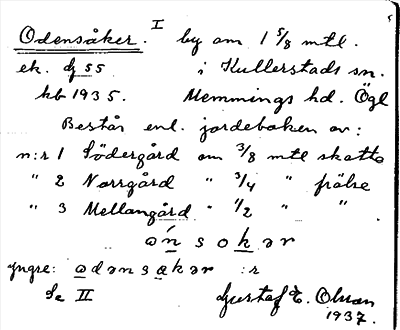 Odensåker. I by om 1 5/8 mtl.
ek. dj 55 i Kullerstads sn.
kb 1935. Memmings hd. Ögl
Består enl. jordeboken av:
n:r 1 Södergård om 3/8 mtl skatte
" 2 Norrgård " 3/4 " frälse
" 3 Mellangård " 1/2 " "
ǝńsokǝr
yngre: odǝnsakǝr :r
Se II Gustaf E. Olsson
1937.